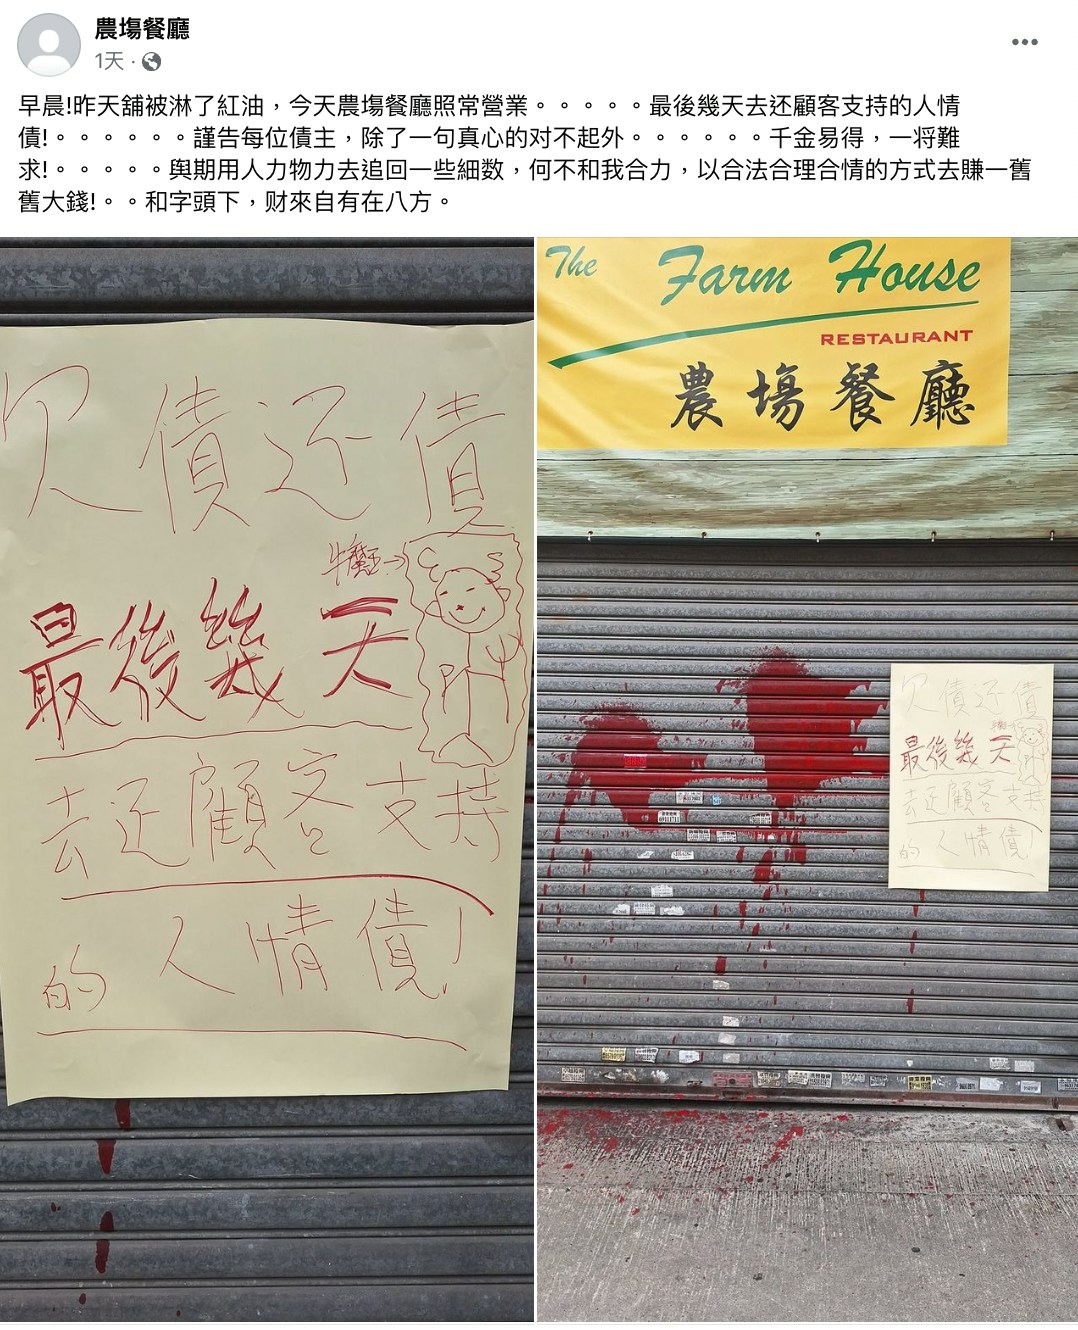 農塲餐廳
1天 ·
早晨!昨天舖被淋了紅油，今天農塲餐廳照常營業。。。。。最後幾天去还顧客支持的人情
債!。。。。。。謹告每位債主，除了一句真心的对不起外。。。。。。千金易得，一将難
求!。。。。。與期用人力物力去追回一些細数，何不和我合力，以合法合理合情的方式去賺一舊
舊大錢!。。和字頭下，财來自有在八方。
欠債还債
最後幾天
去还顧客支持
的人情債!
The Farm House
RESTAURANT
農塲餐廳
欠債还債
最後幾天
去还顧客支持
的人情債!